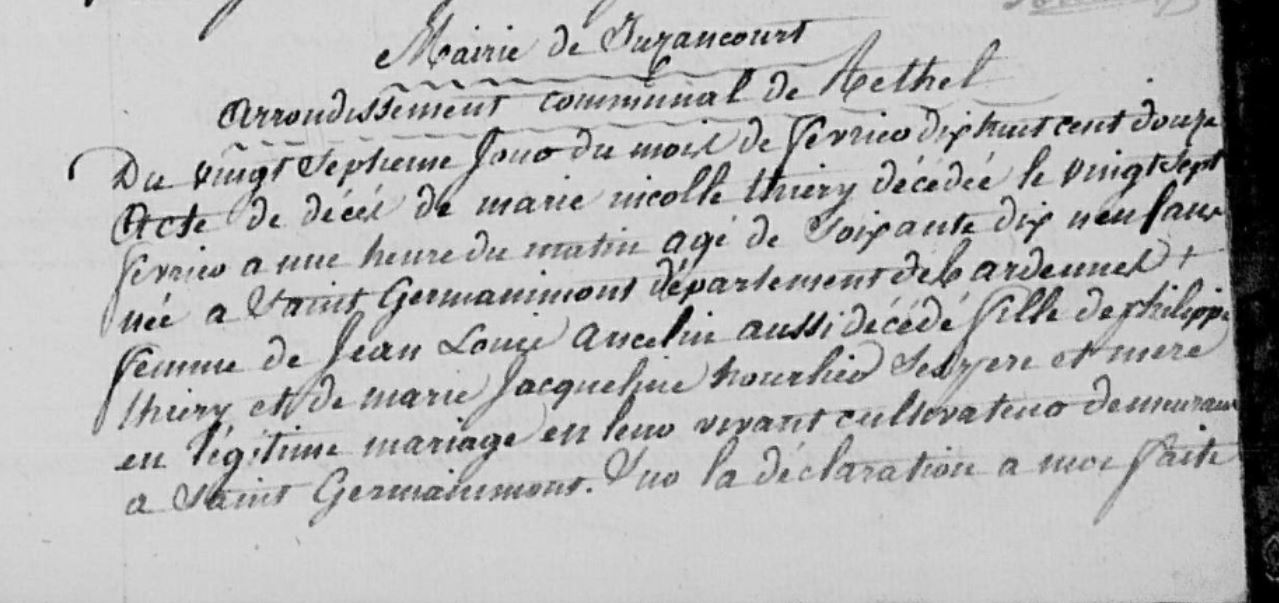 Mairie de Juzancourt
Arrondissement communal de Rethel
Du vingt Septieme Jour du mois de fevrier dix huit cent douze
Acte de décés de marie nicolle thiery décédée le vingt Sept
fevrier a une heure du matin agé de Soixante dix neuf ans
née a Saint Germainmont département des ardennes +
femme de Jean Louis ancelin aussi décédé fille de philippe
thiery et de marie Jacqueline Ses pere et mere
en légitime mariage en leur vivant cultivateur demeurant
a Saint Germainmont. Sur la déclaration a moi faite